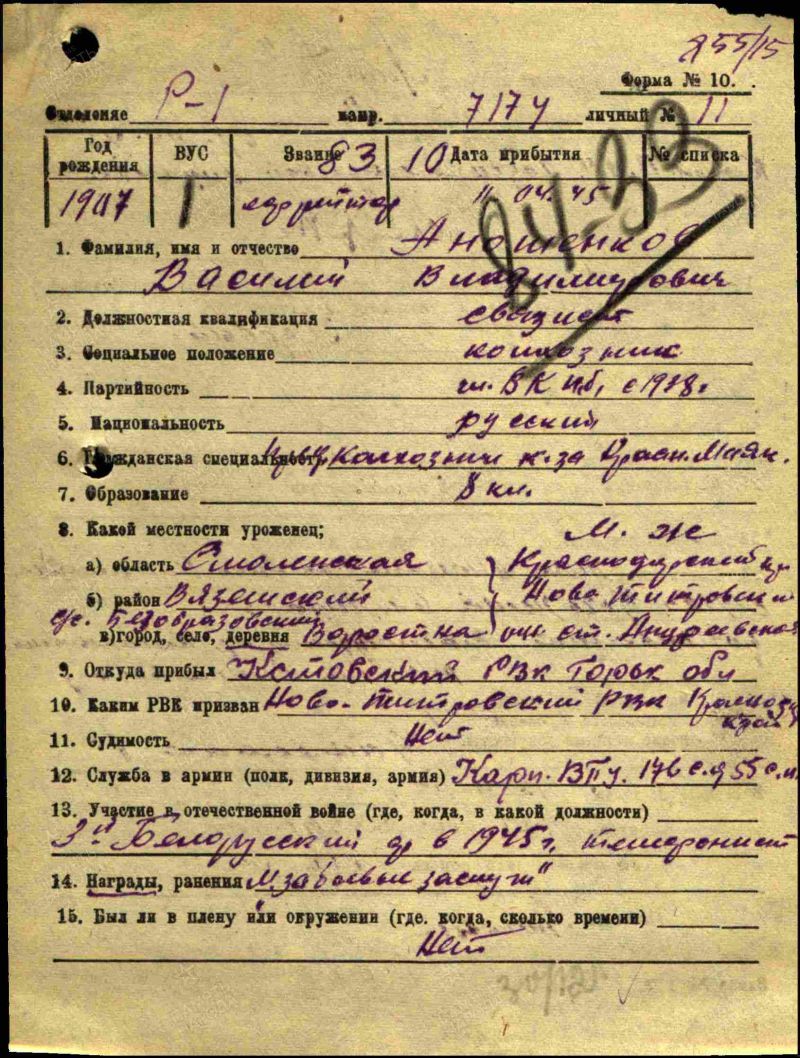 955/15
Форма № 10.
Отделение Р-1 напр. 7174 личный № 11
Год рождения ВУС Звание 83 10 Дата прибытия № списка
1907 1 ефрейтор 11 04. 45
1. Фамилия, имя и отчество Аношенков
Василий Владимирович
2. Должностная квалификация связист
3. Социальное положение колхозник
4. Партийность чл. ВКПб, с
5. Национальность русский
6. Гражданская специальность Колхозник к-за Красн. Маяк.
7. Образование 8 кл.
8. Какой местности уроженец; М. ж
а) область Смоленская Краснодарский кр
б) район Вяземский Ново-Титровский
с/с. Безобразовский
в) город, село, деревня ст. Андреевской
9. Откуда прибыл Кстовский РВК Горьк обл
10. Каким РВК призван Ново-Титровский РВК Краснод
край
11. Судимость Нет
12. Служба в армии (полк, дивизия, армия) 55 с.п
13. Участие в отечественной войне (где, когда, в какой должности)
3й Белорусский ф в 1945г. телефонист
14. Награды, ранения М. за боевые заслуги"
15. Был ли в плену или окружении (где. когда, сколько времени)
Нет